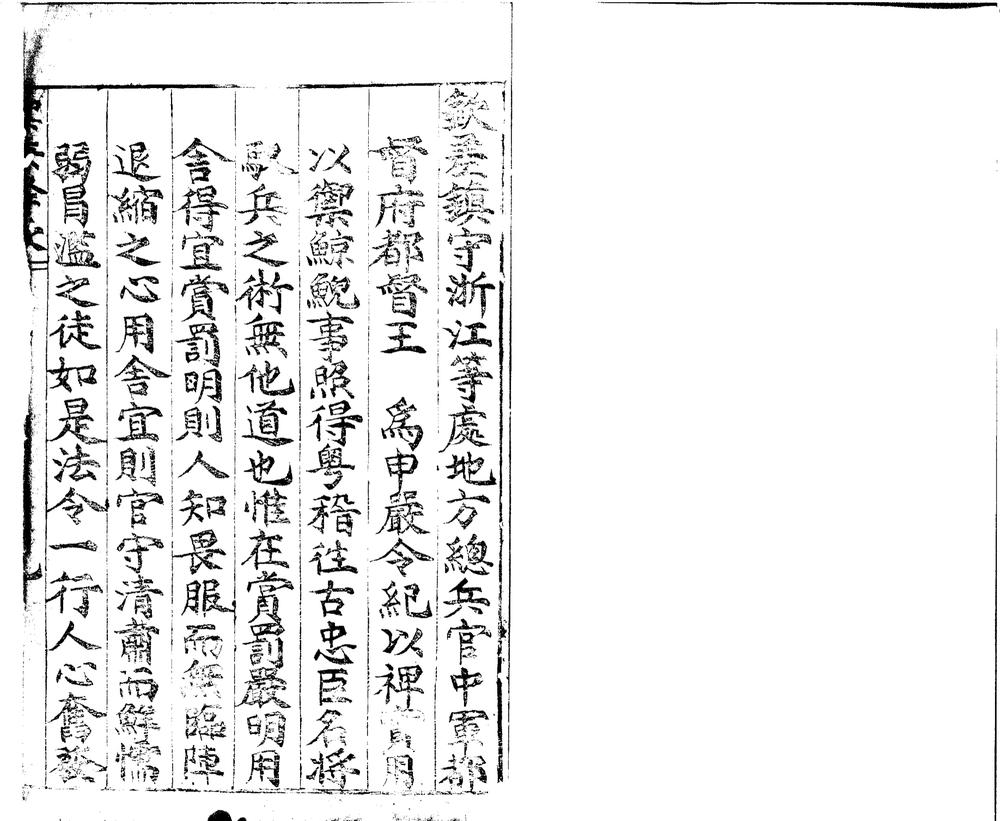 欽差鎮守浙江等處地方總兵官中軍都
督府都督王　爲申嚴令紀以裨實用
以禦鯨鯢事照得粤稽徃古忠臣名將
馭兵之術無他道也惟在賞罰嚴明用
舎得宜賞罰明則人知畏服而無臨陣
退縮之心用舎宜則官守清肅而鮮懦
弱冒濫之徒如是法令一行人心奮發